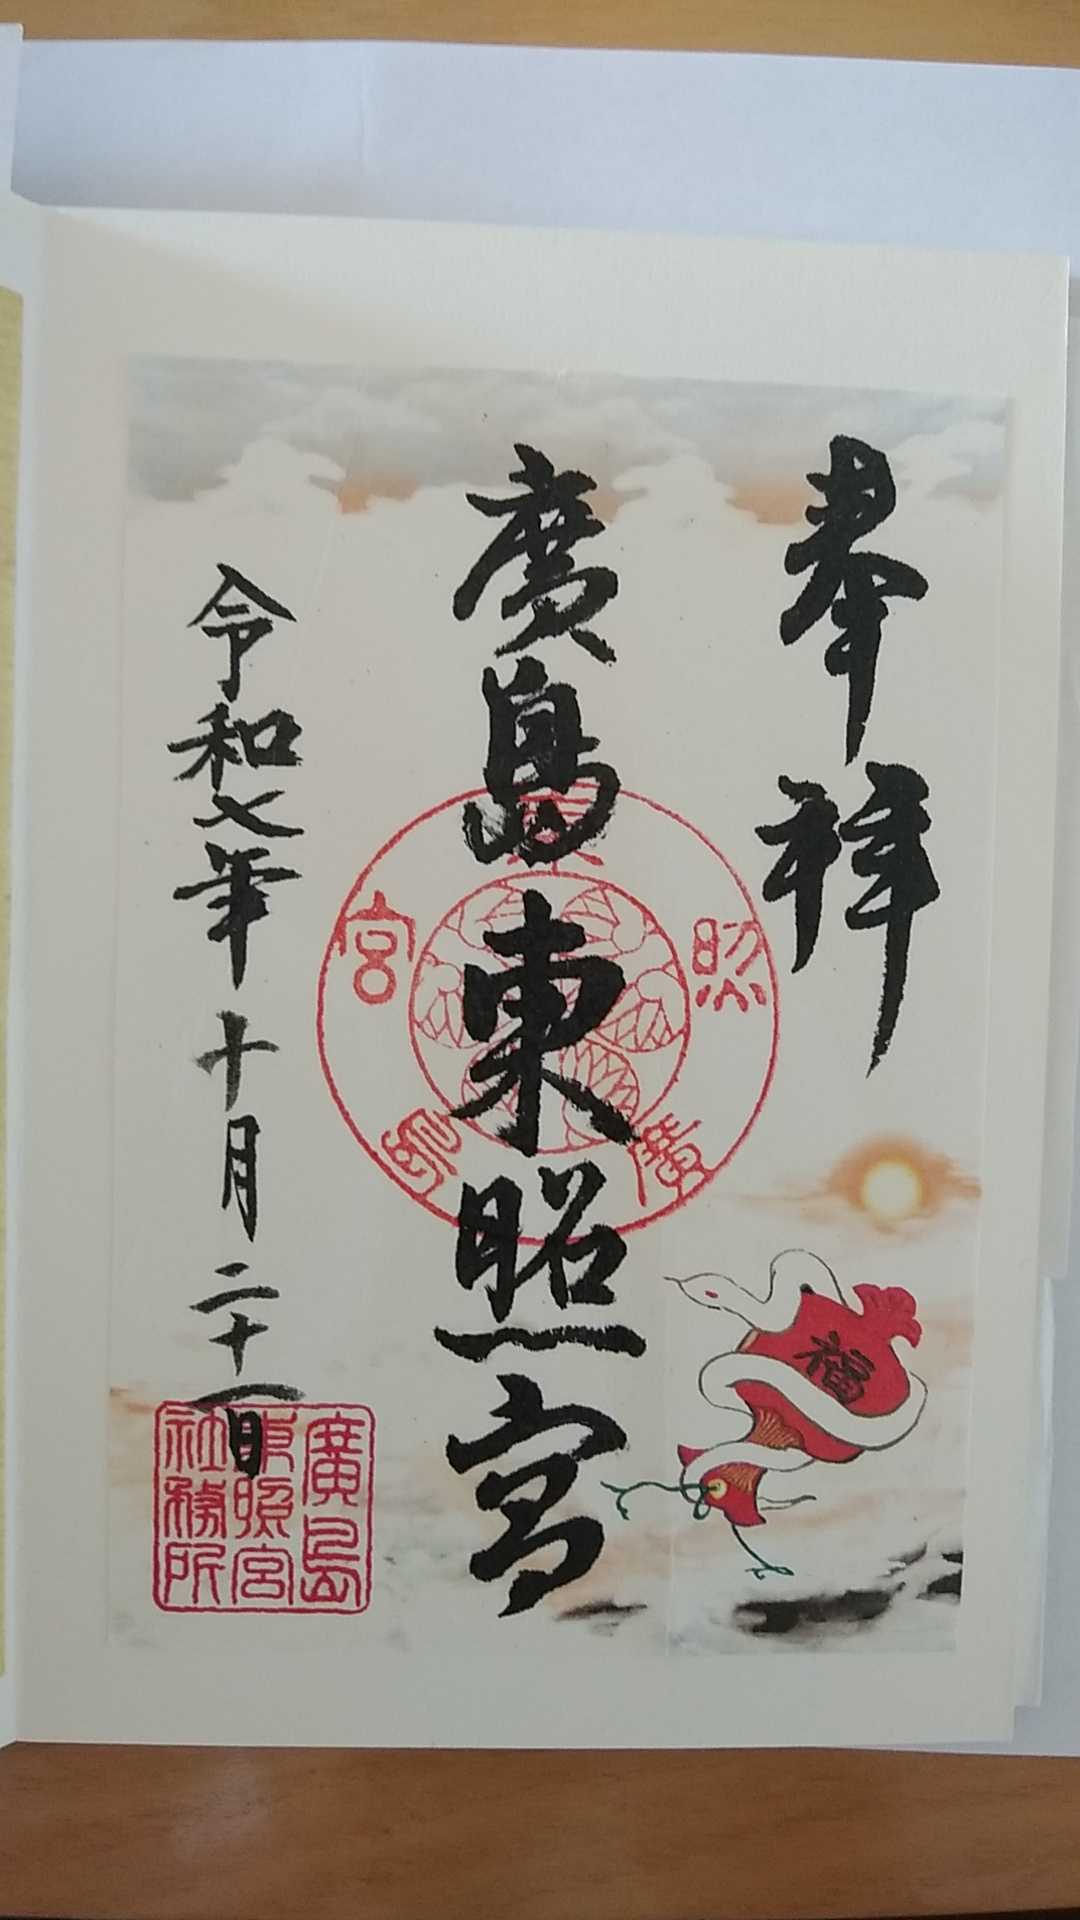 奉拝
廣島東照宮
令和七年十月二十一日
福
廣島東照宮
廣島
東照宮
社務所